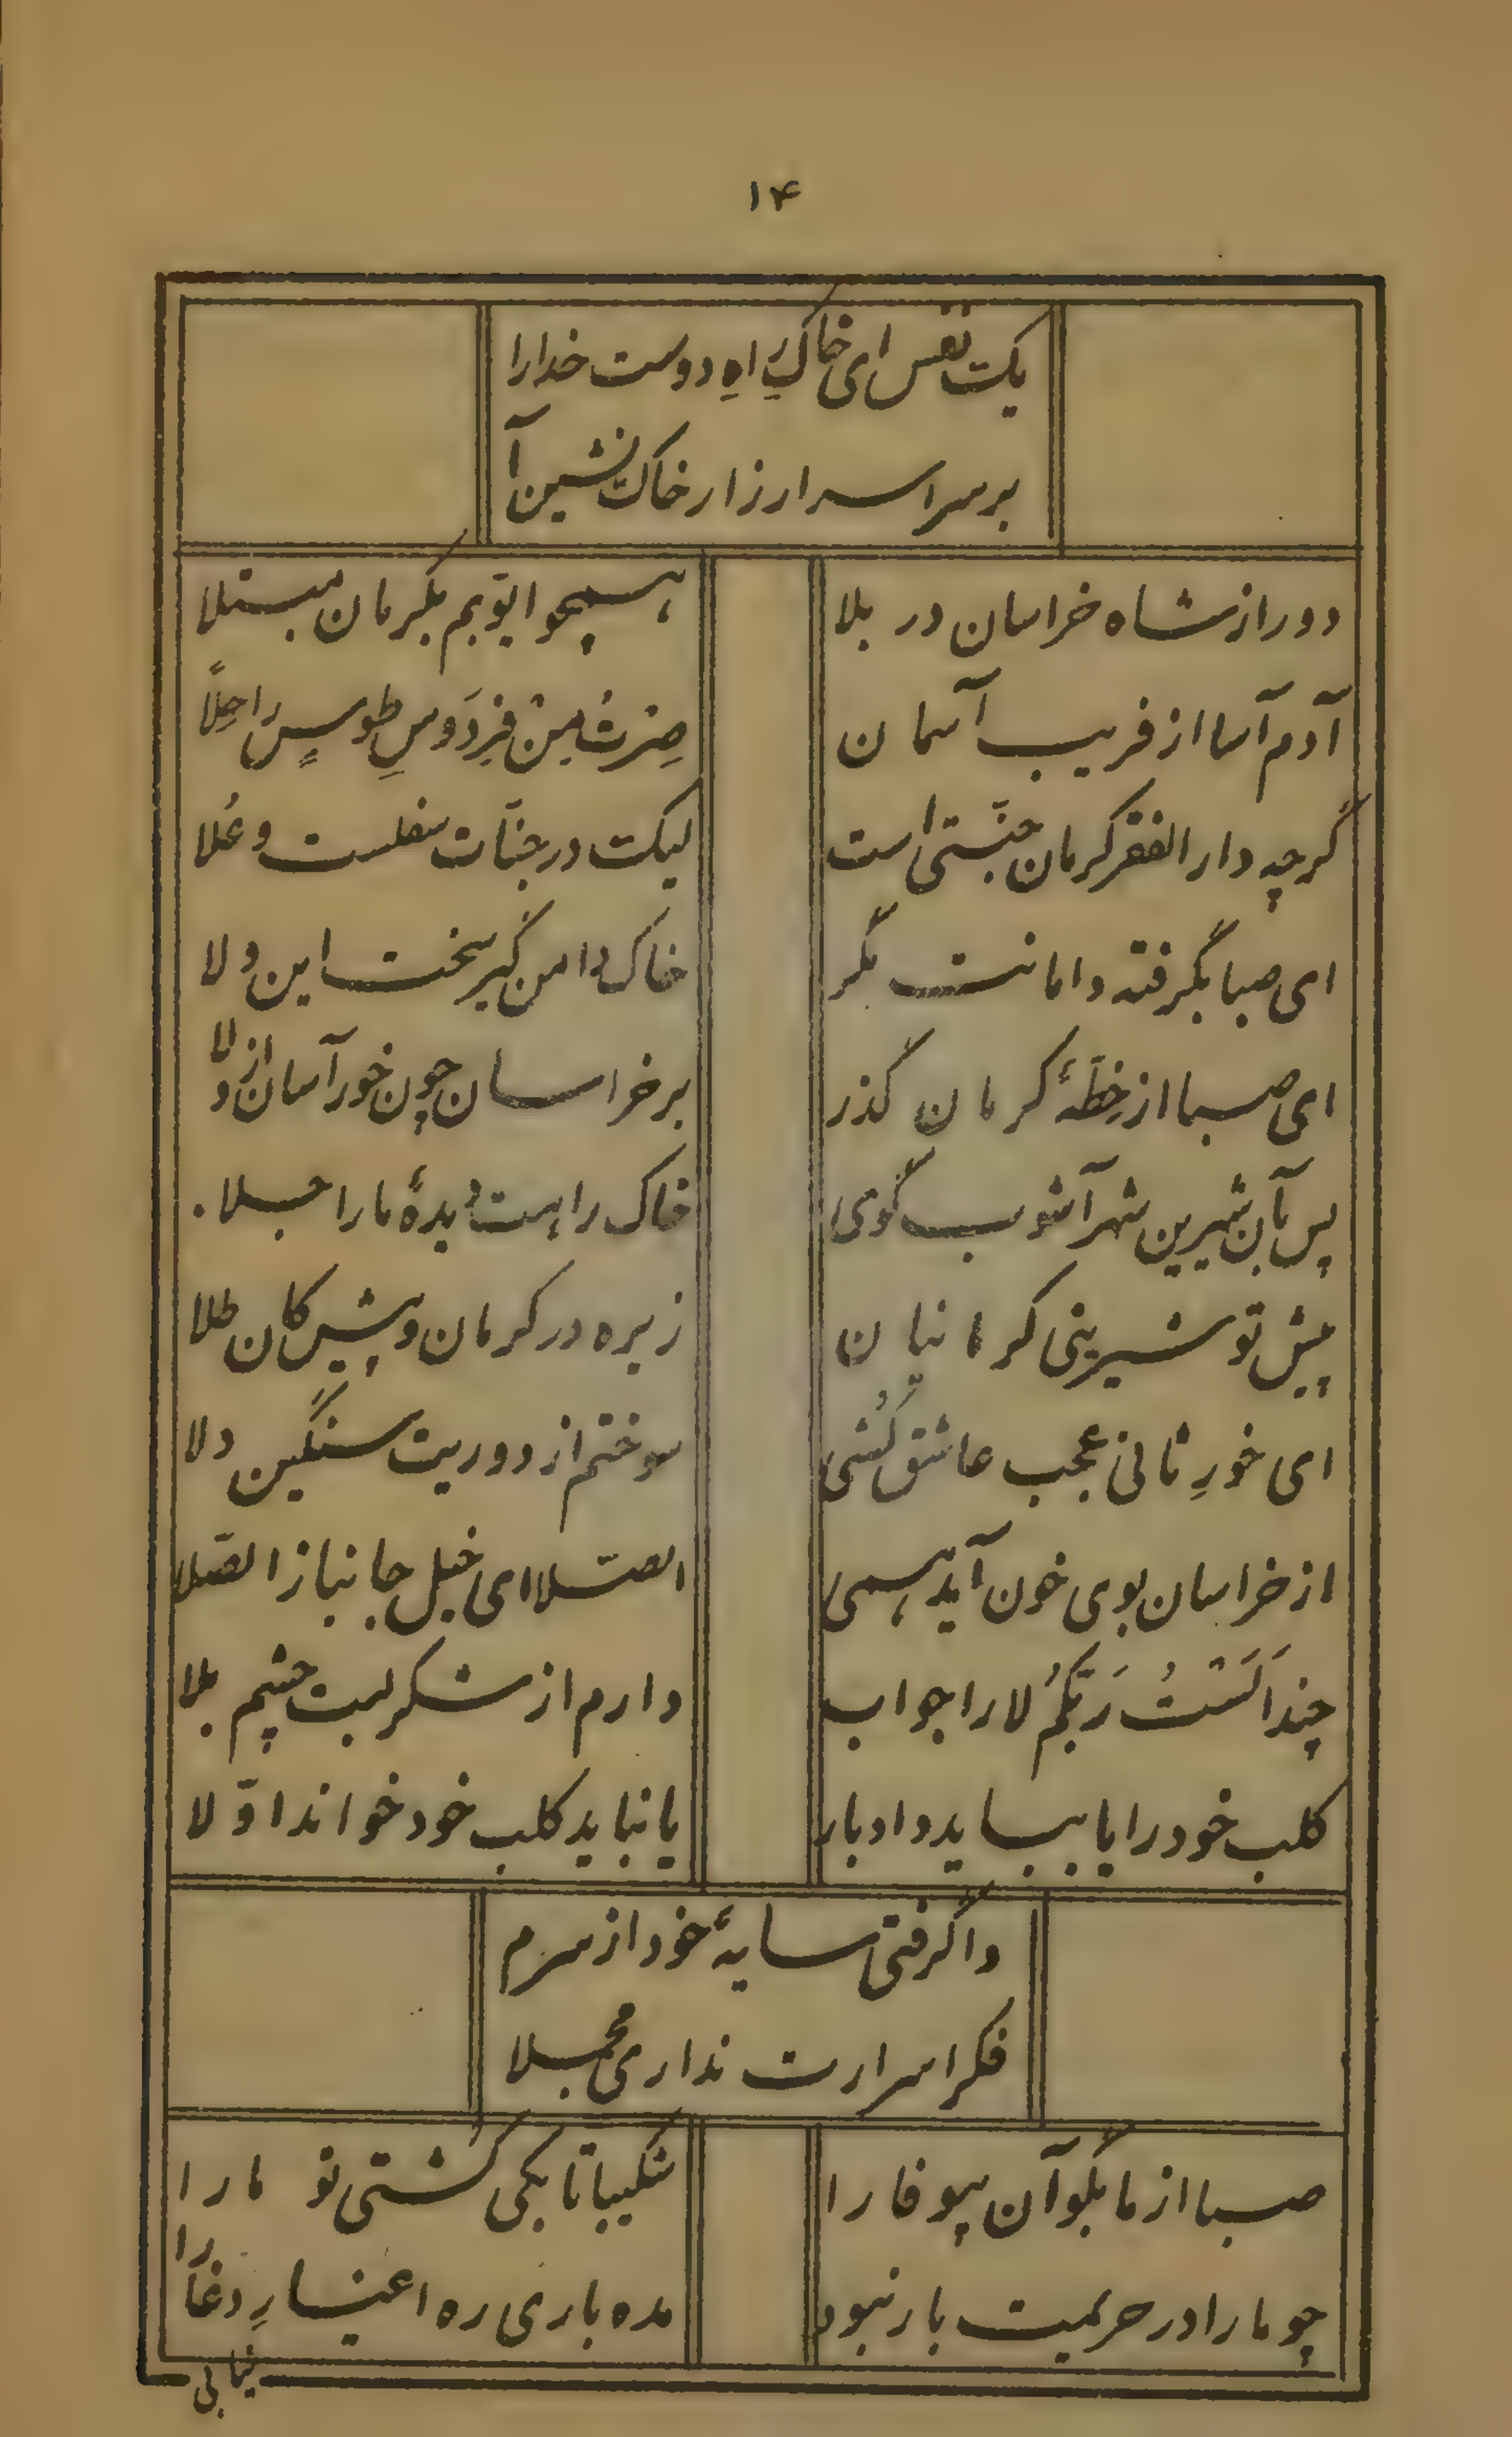 ۱۴
یکت نفس ای خاکِ راهِ دوست خدارا
بر سر اسرار زار خاکت نشین آ
دور از شاه خراسان در بلا
همچو ایّوبم بکرمان مبتلا
آدم آسا از فریب آسمان
صِرْتُ مِنْ فِردَوسِ طوسٍ راحِلاً
گرچه دار الفقر کرمان جنّتی است
لیکت در جنّات سفلست و عُلا
ای صبا بگرفته دامانت مگر
خاک دامن گیر سخت این ولا
ای صبا از خِطّهٔ کرمان گذر
بر خراسان چون خور آسان از ولا
پس بآن شیرین شهر آشوب گوی
خاک راهت دیدهٔ ما را جلا
پیش تو شیرینی کرمانیان
زیره در کرمان و پیش کان طلا
ای خورِ ثانی عجب عاشق کُشی
سوختم از دوریت سنگین دلا
از خراسان بوی خون آید همی
الصّلا ای خیل جانباز الصّلا
چند اَلَسْتُ رَبّکُم لا را جواب
دارم از شکر لبت چشم بلا
کلب خود را یا ببایید داد بار
یا نباید کلب خود خواند اوّلا
واگرفتی سایهٔ خود از سرم
فکر اسرارت نداری مجملا
صبا از ما بگو آن بیوفا را
شکیبا تا بکی کشتی تو ما را
چو ما را در حریمت بار نبود
مده باری ره اغیارِ دغا را
نیابی